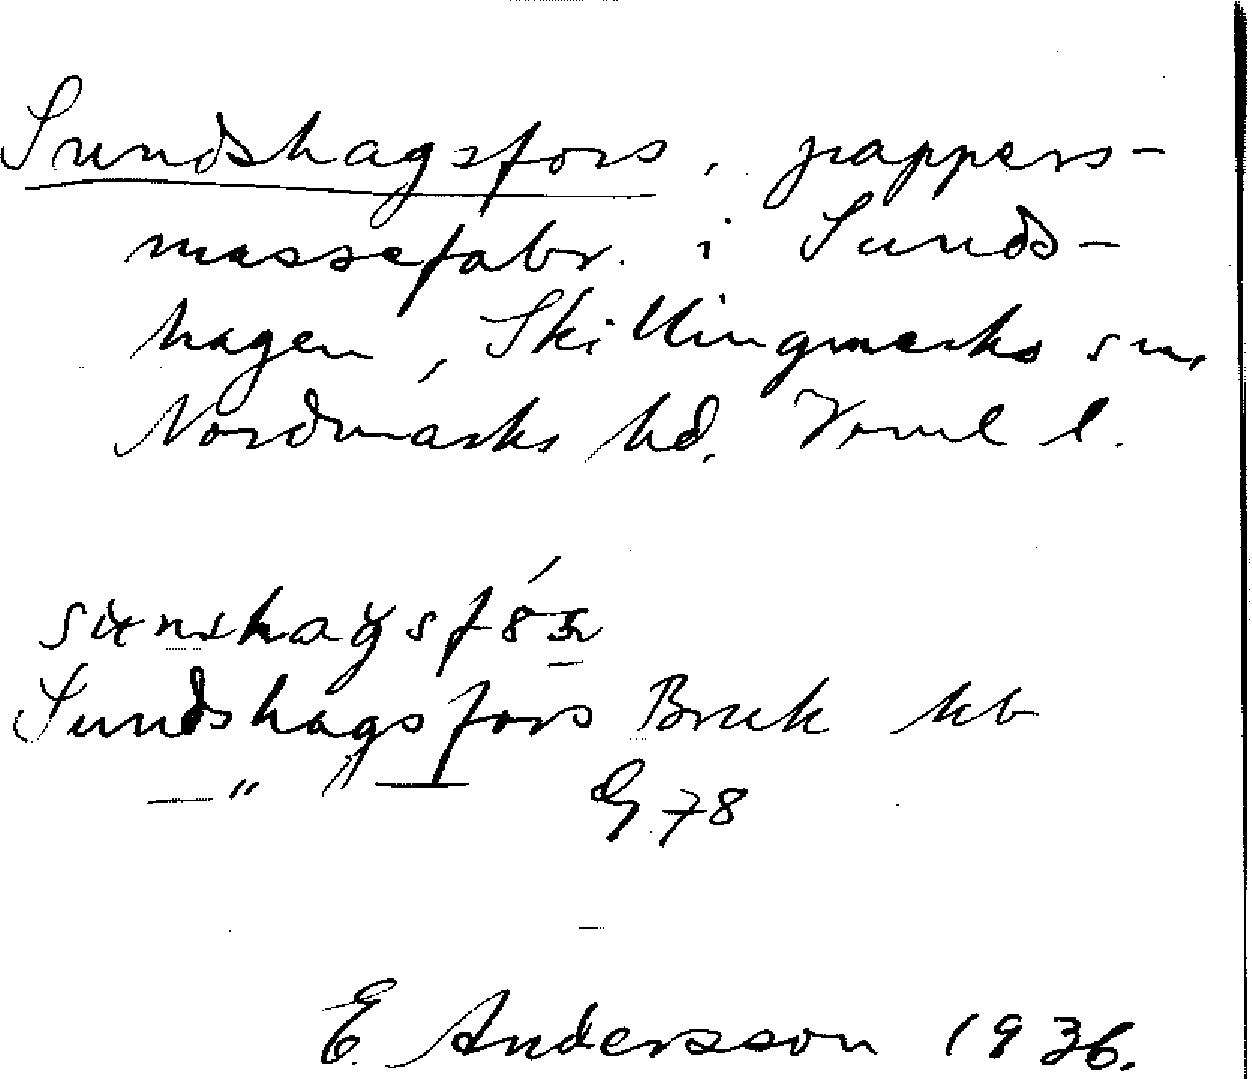 Sundshagsfors, pappers-
massefabr. i Sunds-
hagen, Skillingmarks sn,
Nordmarks hd. Verml l.
Sundshagsfors Bruk kb
—"— G 78
E. Andersson 1936.